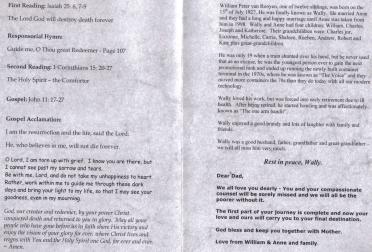 First Reading: Isaiah 25: 6, 7-9
The Lord God will destroy death forever
Responsorial Hymn:
Guide me, O Thou great Redeemer - Page 107
Second Reading: 1 Corinthians 15: 20-27
The Holy Spirit – the Comforter
Gospel: John 11: 17-27
Gospel Acclamation:
I am the resurrection and the life, said the Lord;
He, who believes in me, will not die forever.
O Lord, I am torn up with grief. I know you are there, but
I cannot see past my sorrow and tears.
Be with me, Lord, and do not take my unhappiness to heart.
Rather, work within me to guide me through these dark
days and bring your light to my life, so that I may see your
goodness, even in my mourning.
God, our creator and redeemer, by your power Christ
conquered death and returned to you in glory. May all your
people who have gone before us in faith share His victory and
enjoy the vision of your glory for ever, where Christ lives and
reigns with You and the Holy Spirit one God, for ever and ever.
– Amen.
William Peter van Rooyen, one of twelve siblings, was born on the
15th of July 1927. He was fondly known as Wally. He married Anne
and they had a long and happy marriage until Anne was taken from
him in 1998. Wally and Anne had four children; William, Charles,
Joseph and Katherine. Their grandchildren were: Charles jnr,
Michelle, Carrie, Shaleen, Andrew, Robert and
Kim plus great-grandchildren.
He was only 19 when a train shunted over his hand, but he never used
that as an excuse, he was the youngest person ever to gain the next
promotional rank and ended up running the newly built container
terminal in the 1970s, where he was known as "The Voice" and they
moved more containers in the 70s than they do today with all our modern
technology.
Wally loved his work, but was forced into early retirement due to ill
health. After being retired, he started bowling and was affectionately
known as "The one arm bandit".
Wally enjoyed a good brandy and lots of laughter with family and
friends.
Wally was a good husband, father, grandfather and great-grandfather –
we will all miss him very much.
Rest in peace, Wally.
Dear Dad,
We all love you dearly - You and your compassionate
counsel will be sorely missed and we will all be the
poorer without it.
The first part of your journey is complete and now your
love and ours will carry you to your final destination.
God bless and keep you together with Mother.
Love from William & Anne and family.